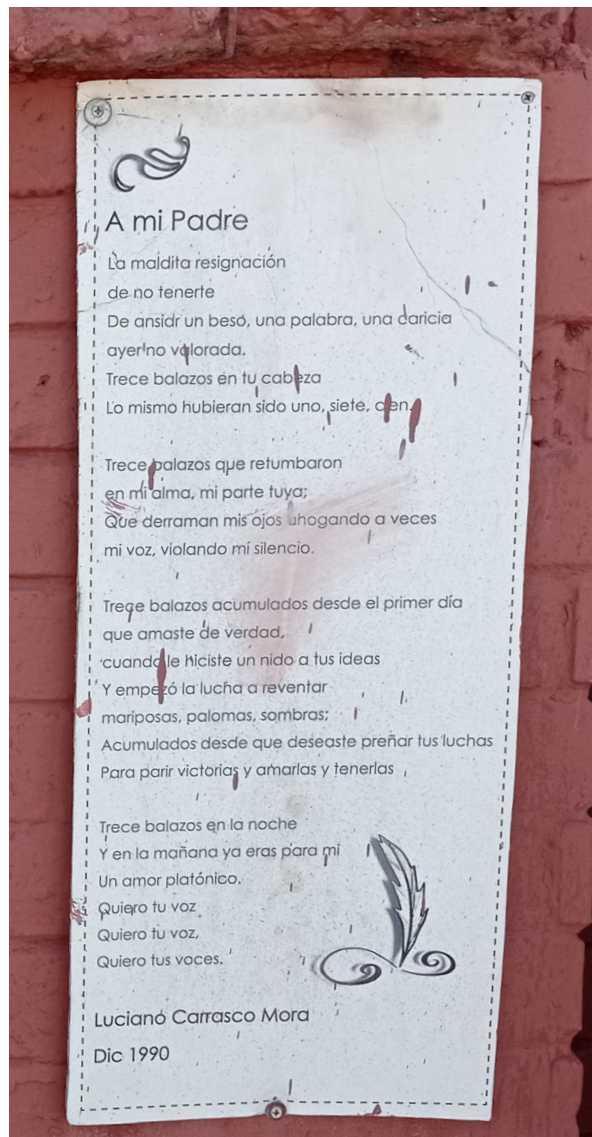 A mi Padre
La maldita resignación
de no tenerte
De ansiar un beso, una palabra, una caricia
ayer no valorada.
Trece balazos en tu cabeza
Lo mismo hubieran sido uno, siete, cien.
Trece balazos que retumbaron
en mi alma, mi parte tuya;
Que derraman mis ojos ahogando a veces
mi voz, violando mi silencio.
Trece balazos acumulados desde el primer día
que amaste de verdad,
cuando le hiciste un nido a tus ideas
Y empezó la lucha a reventar
mariposas, palomas, sombras;
Acumulados desde que deseaste preñar tus luchas
Para parir victorias y amarlas y tenerlas
Trece balazos en la noche
Y en la mañana ya eras para mi
Un amor platónico.
Quiero tu voz
Quiero tu voz,
Quiero tus voces.
Luciano Carrasco Mora
Dic 1990